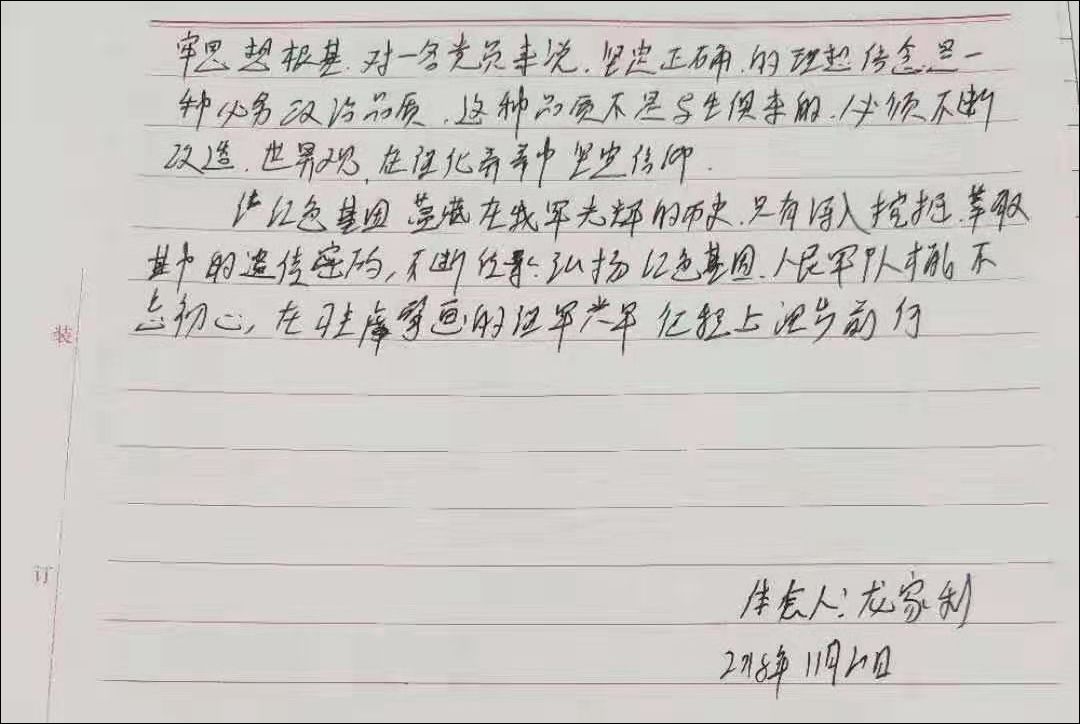 牢思想根基.对一名党员来说.坚定正确.的理想信念是一
种必务政治品质.这种品质不是与生俱来的.必须不断
改造.世界观,在强化弄弄中坚定信仰.
红色基因蕴藏在我军光辉的历史.只有深入挖掘.萃取
其中的遗传密码,不断传承.弘扬红色基因.人民军队才能不
忘初心,在习主席擘画的强军兴军征程上阔步前行
装
订
体会人:龙家利
2018年11月20日